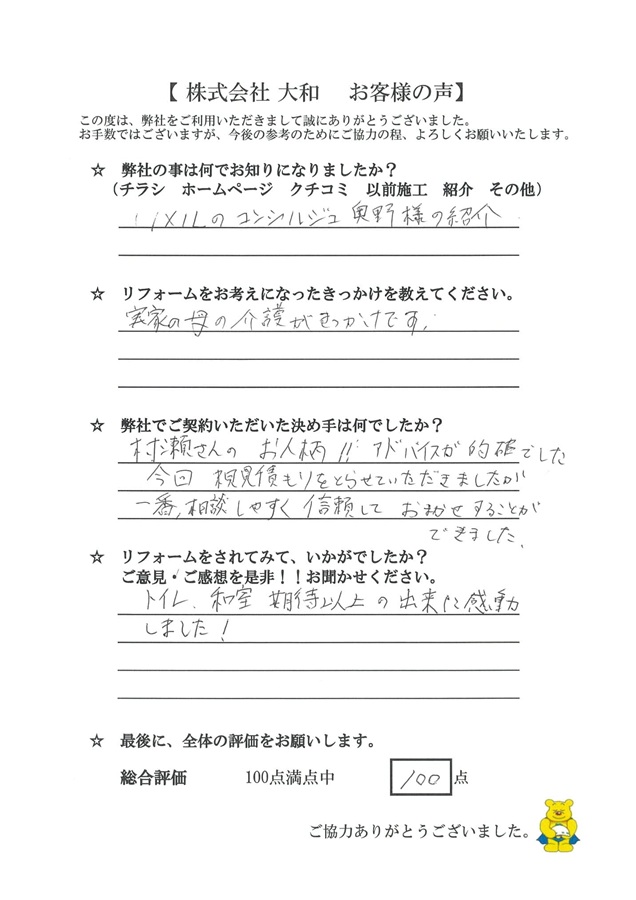 【 株式会社 大和　お客様の声】
この度は、弊社をご利用いただきまして誠にありがとうございました。
お手数ではございますが、今後の参考のためにご協力の程、よろしくお願いいたします。
☆　弊社の事は何でお知りになりましたか？
（チラシ　ホームページ　クチコミ　以前施工　紹介　その他）
LIXILのコンシルジュ 奥野様の紹介
☆　リフォームをお考えになったきっかけを教えてください。
実家の母の介護がきっかけです。
☆　弊社でご契約いただいた決め手は何でしたか？
村瀬さんの お人柄!! アドバイスが的確でした
今回 相見積もりをとらせていただきましたが
一番、相談しやすく信頼して おまかせすることが
できました。
☆　リフォームをされてみて、いかがでしたか？
ご意見・ご感想を是非！！お聞かせください。
トイレ、和室 期待以上の出来に感動
しました！
☆　最後に、全体の評価をお願いします。
総合評価　100点満点中　100 点
ご協力ありがとうございました。